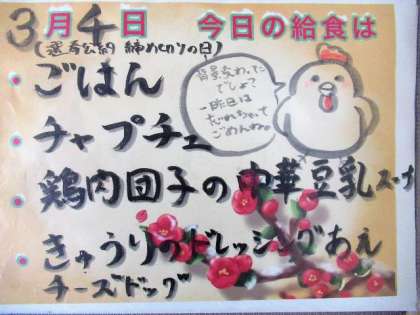 3月4日 今日の給食は
(選考公約 締めきりの日)
背景変わった
でしょ?
一昨日は
だれちゃって
ごめんね。
・ごはん
・チャプチェ
・鶏肉団子の中華豆乳スープ
・きゅうりのドレッシングあえ
チーズドッグ